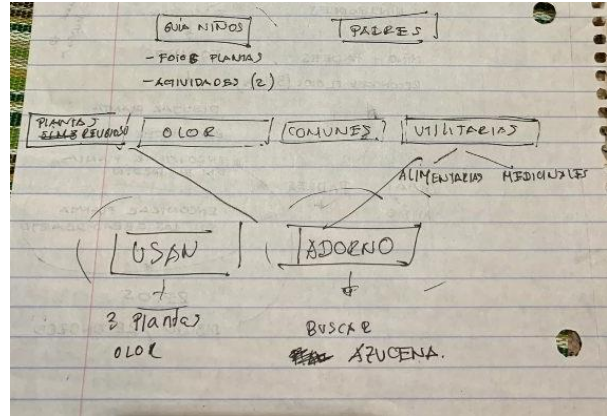 GUÍA NIÑOS
PADRES
- FOTOS PLANTAS
- ACTIVIDADES (2)
PLANTAS
OLOR
COMUNES
UTILITARIAS
ALIMENTARIAS MEDICINALES
USAN
ADORNO
3 Plantas
OLOR
BUSCAR
AZUCENA.